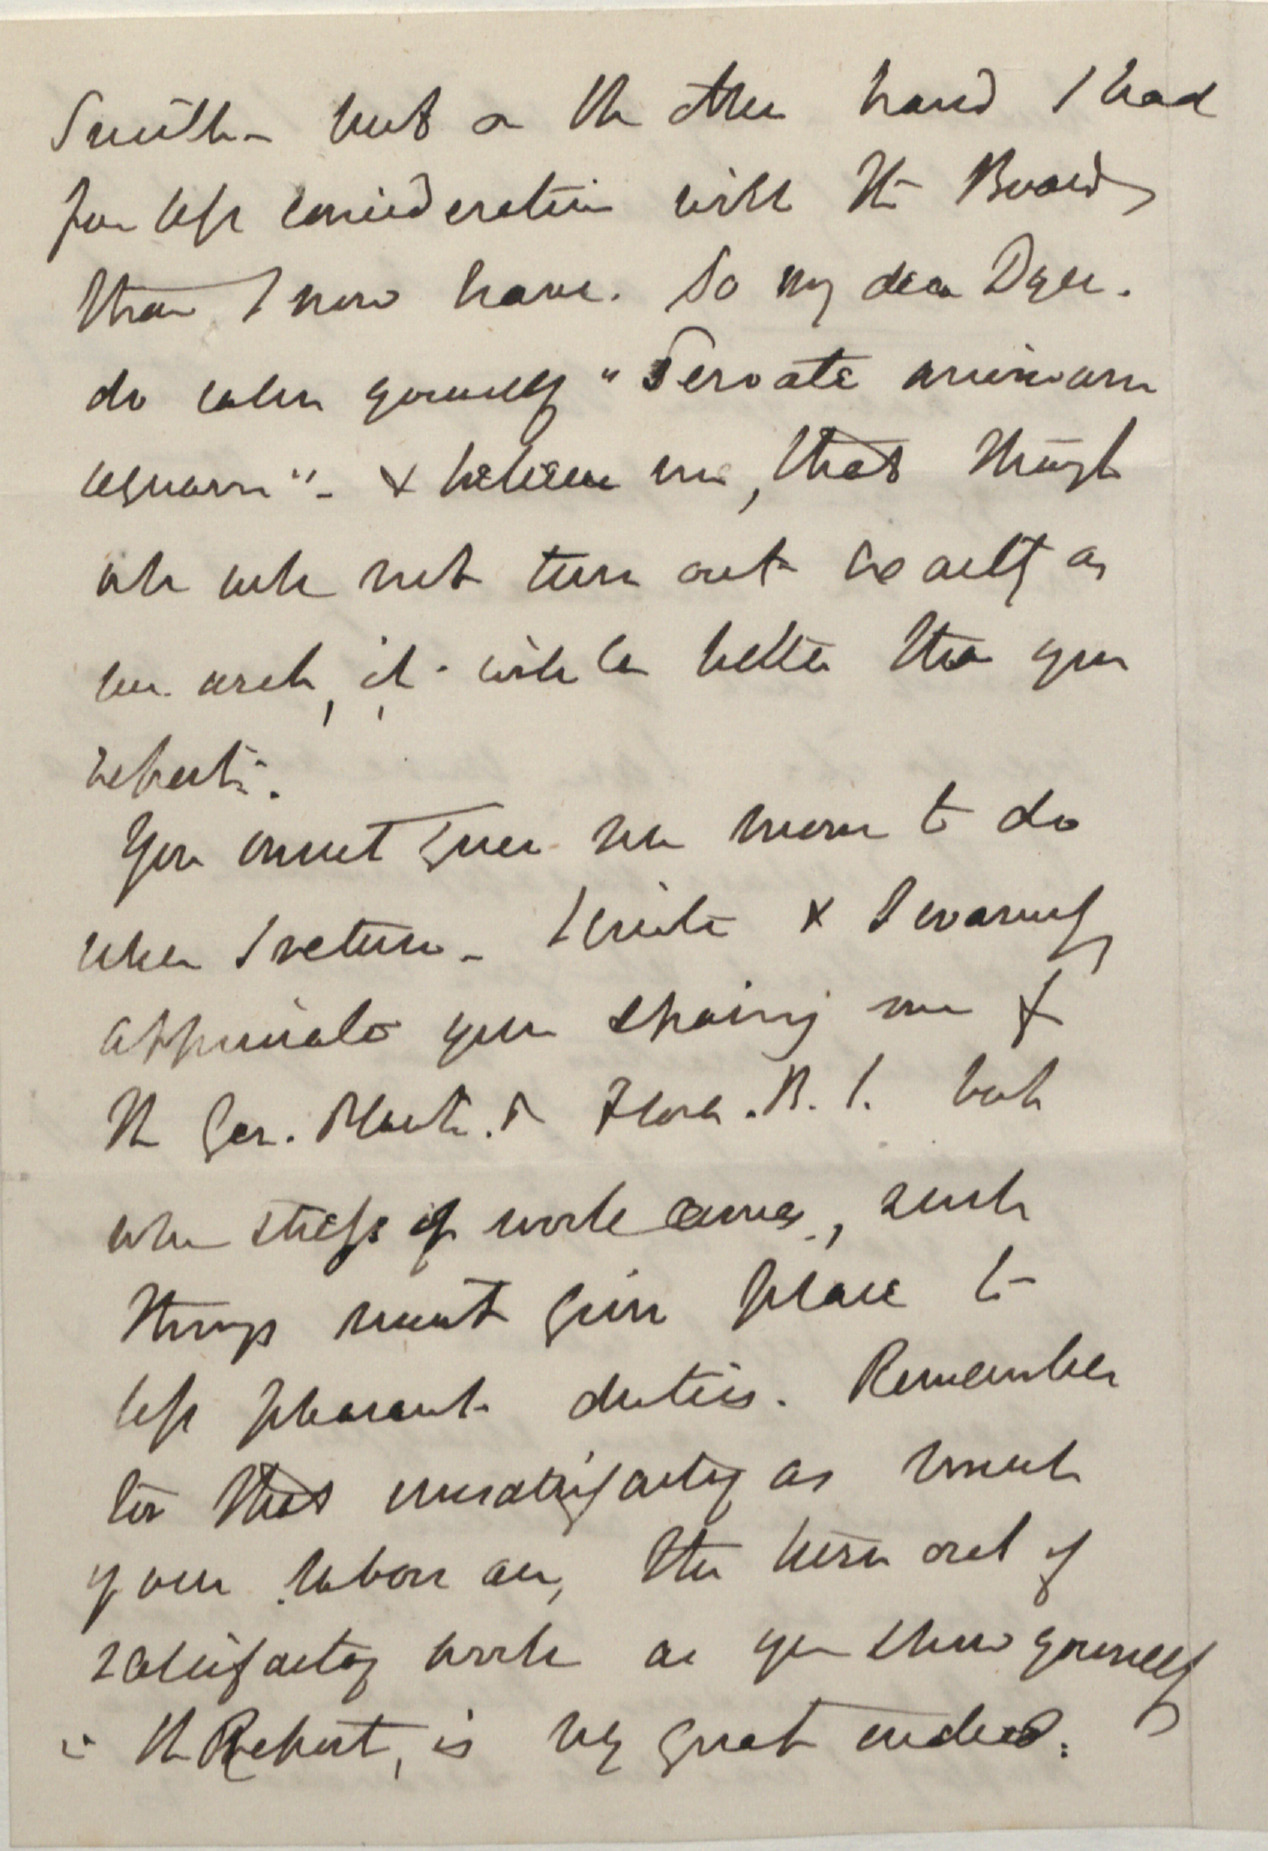 Smith – but on the other hand I had
far less consideration with the Board,
than I now have. So my dear Dyer.
do calm yourself "Servate animam
aequam" – & believe me, that though
all will not turn out exactly as
we wish, it will be better than you
expect.
You must give me more to do
when I return – I quite & warmly
appreciate your sparing me for
the Gen. Plant. & Flora. B. I. but
when stress of work comes, such
things must give place to
less pleasant duties. Remember
too that unsatisfactory as much
your labors are, the turn out of
satisfactory work as you show yourself
in the Report, is very great indeed.